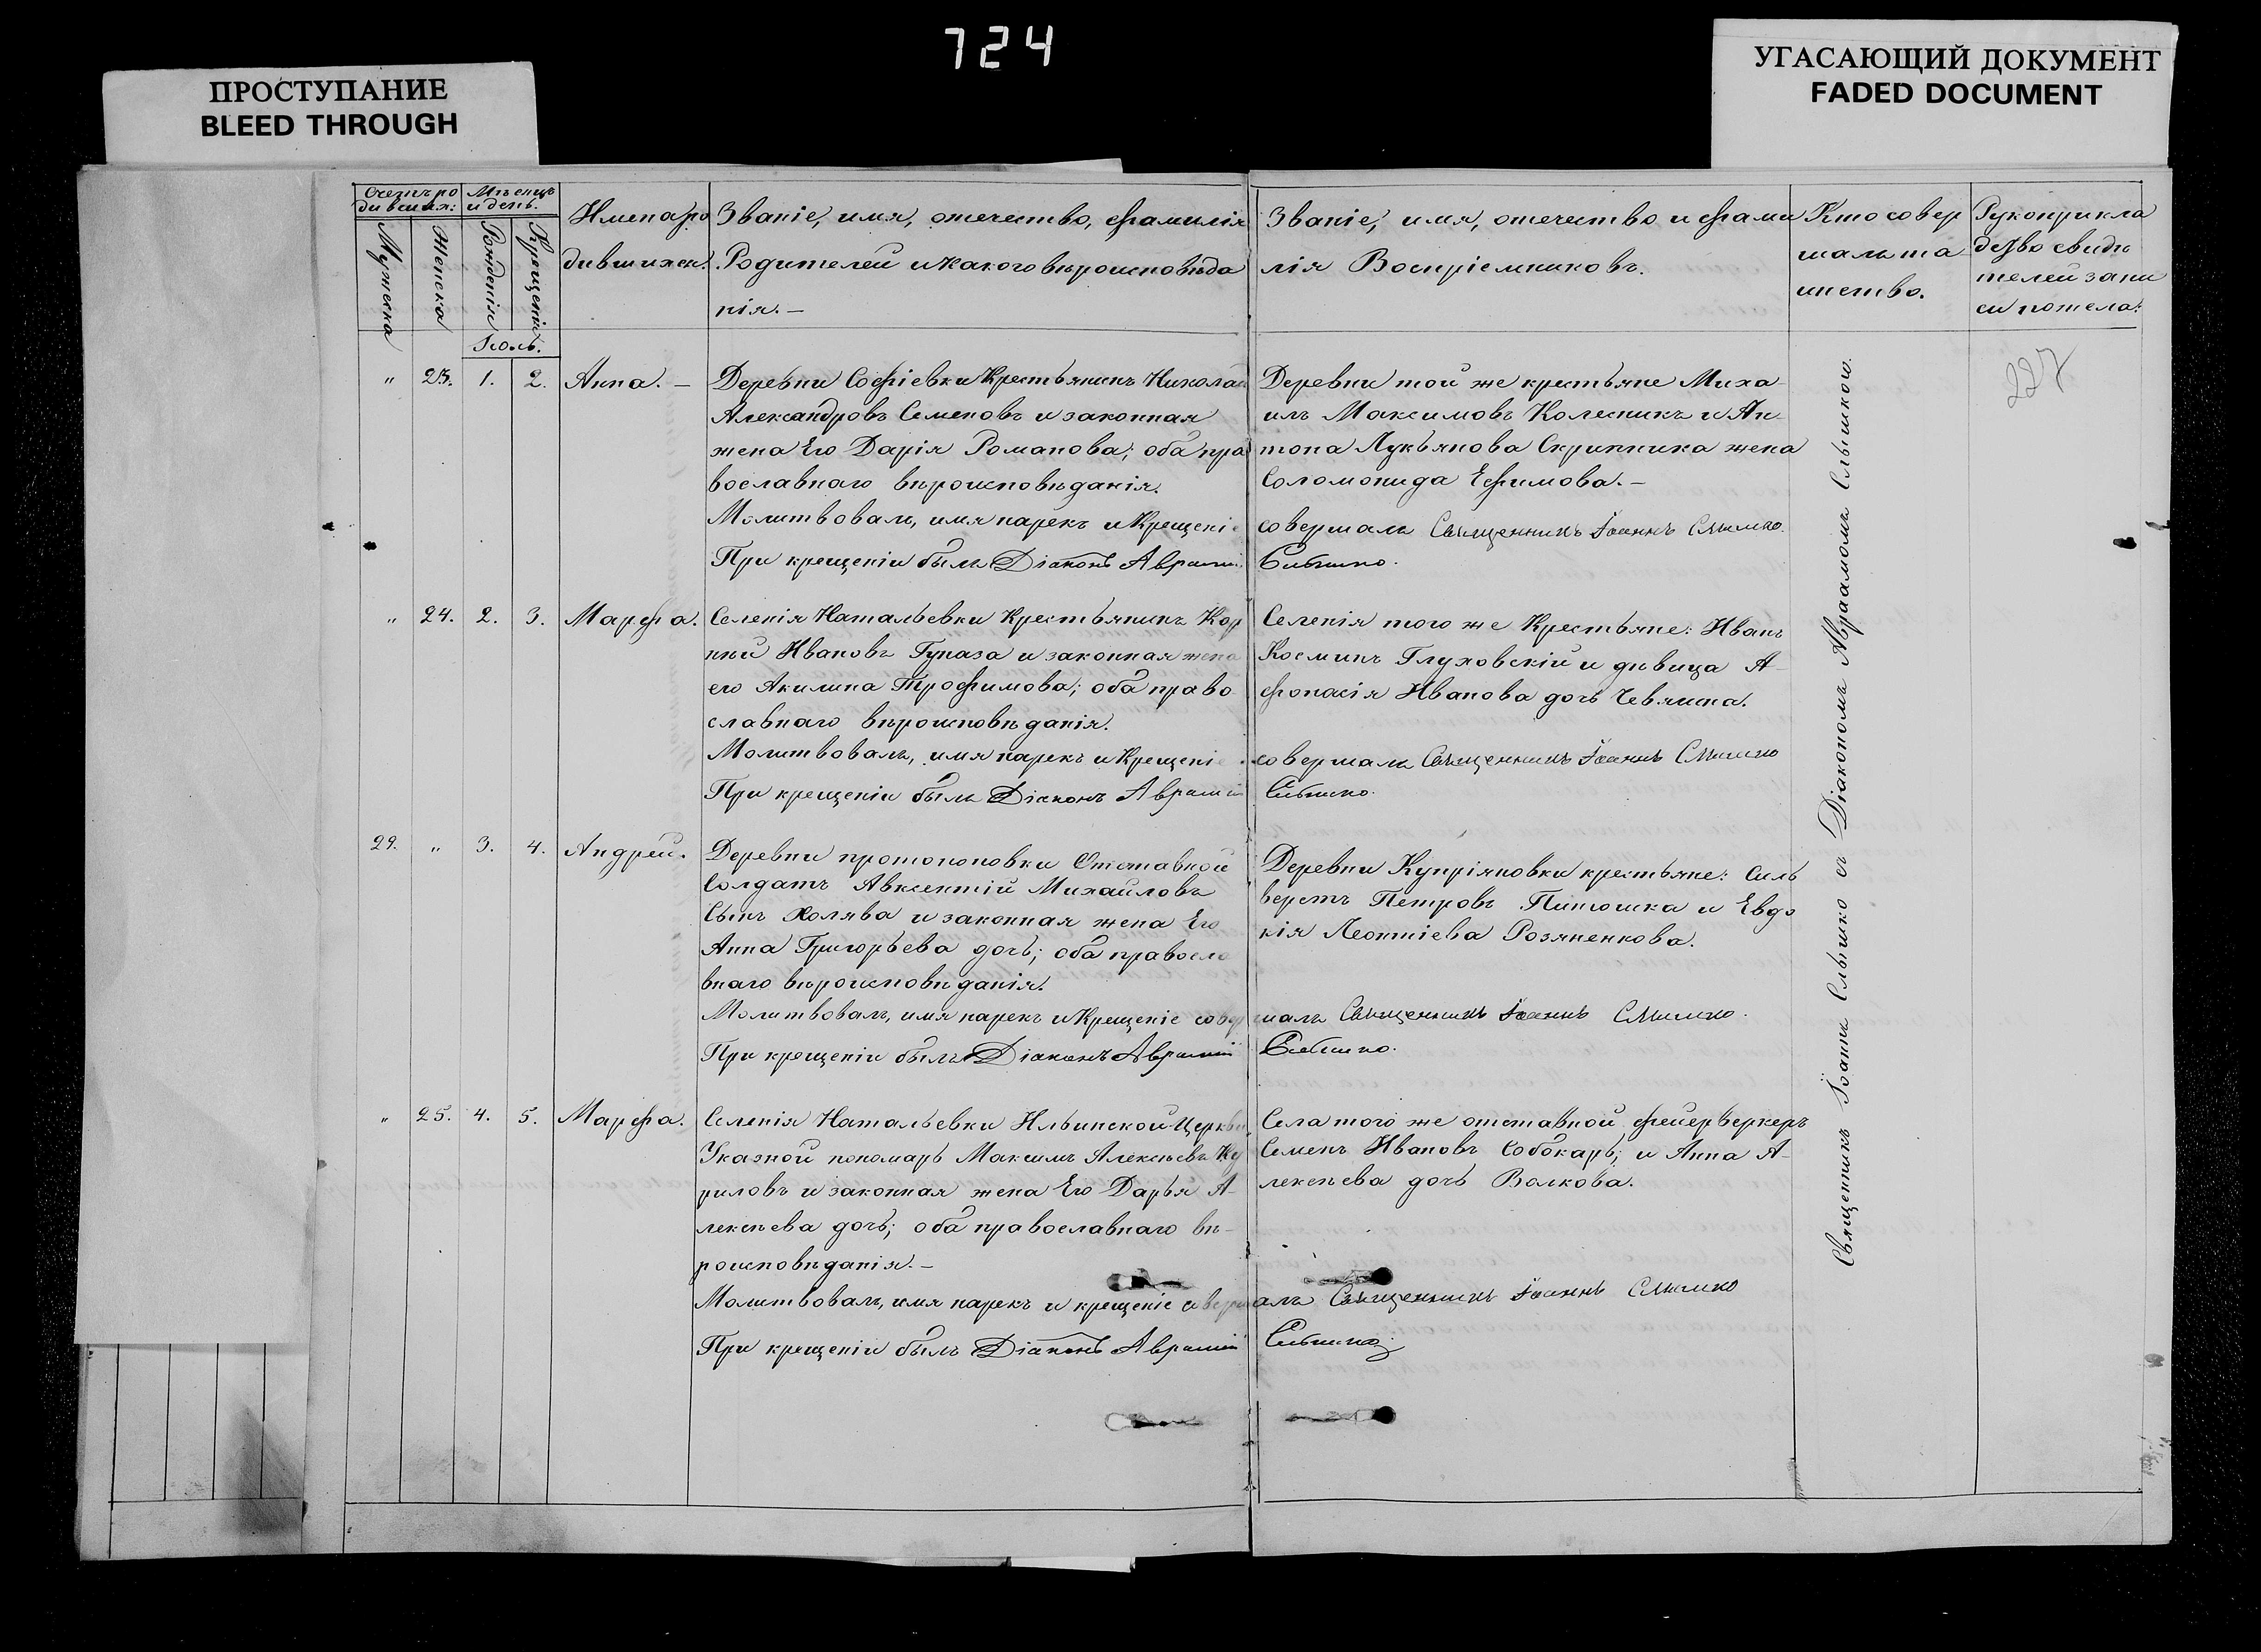 724
ПРОСТУПАНИЕ
BLEED THROUGH
УГАСАЮЩИЙ ДОКУМЕНТ
FADED DOCUMENT
Счетъ ро
дившихъ:
Мужеска
Женска
Мѣсяцъ
и день.
Рожденія
Крещенія
Имена ро
дившихся.
Званіе, имя, отчество, фамилія
Родителей и какого вѣроисповѣда
нія. —
Званіе, имя, отчество и фами
лія Воспріемниковъ.
Кто совер
шалъ та
инство.
Рукоприкла
дство свидѣ
телей запи
си по
Іюль.
227
" 23. 1. 2. Анна. —
Деревни Софіевки Крестьянинъ Николай
Александровъ Семеновъ и законная
жена Его Дарія Романова; оба пра
вославнаго вѣроисповѣданія.
Молитвовалъ, имя нарекъ и Крещеніе
При крещеніи былъ Діаконъ
Деревни той же крестьяне Миха
илъ Максимовъ Колесникъ и Ан
тона Лукьянова Скрипника жена
Соломонида Ефимова. —
совершалъ Священникъ Іоаннъ Слышко.
Слышко.
" 24. 2. 3. Марфа.
Селенія Натальевки Крестьянинъ Кор
ній Ивановъ Гуназа и законная жена
его Акилина Трофимова; оба право
славнаго вѣроисповѣданія.
Молитвовалъ, имя нарекъ и Крещеніе
При крещеніи былъ Діаконъ
Селенія того же Крестьяне: Иванъ
Косминъ Глуховскій и дѣвица А
фонасія Иванова дочь
совершалъ Священникъ Іоаннъ Слышко
Слышко.
29. " 3. 4. Андрей.
Деревни протопоповки Отставной
Солдатъ Авксентій Михайловъ
Сынъ Холява и законная жена Его
Анна Григорьева дочь; оба правосла
внаго вѣроисповѣданія.
Молитвовалъ, имя нарекъ и Крещеніе совер
При крещеніи былъ Діаконъ
Деревни Купріяновки крестьяне: Силь
верстъ Петровъ и Евдо
кія Леонтіева Розяненкова.
шалъ Священникъ Іоаннъ Слышко.
Слышко.
" 25. 4. 5. Марфа.
Селенія Натальевки Ильинской Церкви
Указной пономарь Максимъ Алексѣевъ Ку
риловъ и законная жена Его Дарья А-
лексѣева дочь; оба православнаго вѣ-
роисповѣданія. —
Молитвовалъ, имя нарекъ и крещеніе соверш
При крещеніи былъ Діаконъ
Села того же отставной фейерверкеръ
Семенъ Ивановъ Собокарь; и Анна А-
лексѣева дочь Волкова.
алъ Священникъ Іоаннъ Слышко
Слышко
Священникъ Іоаннъ Слышко съ Діакономъ Авраамомъ Слышкою.